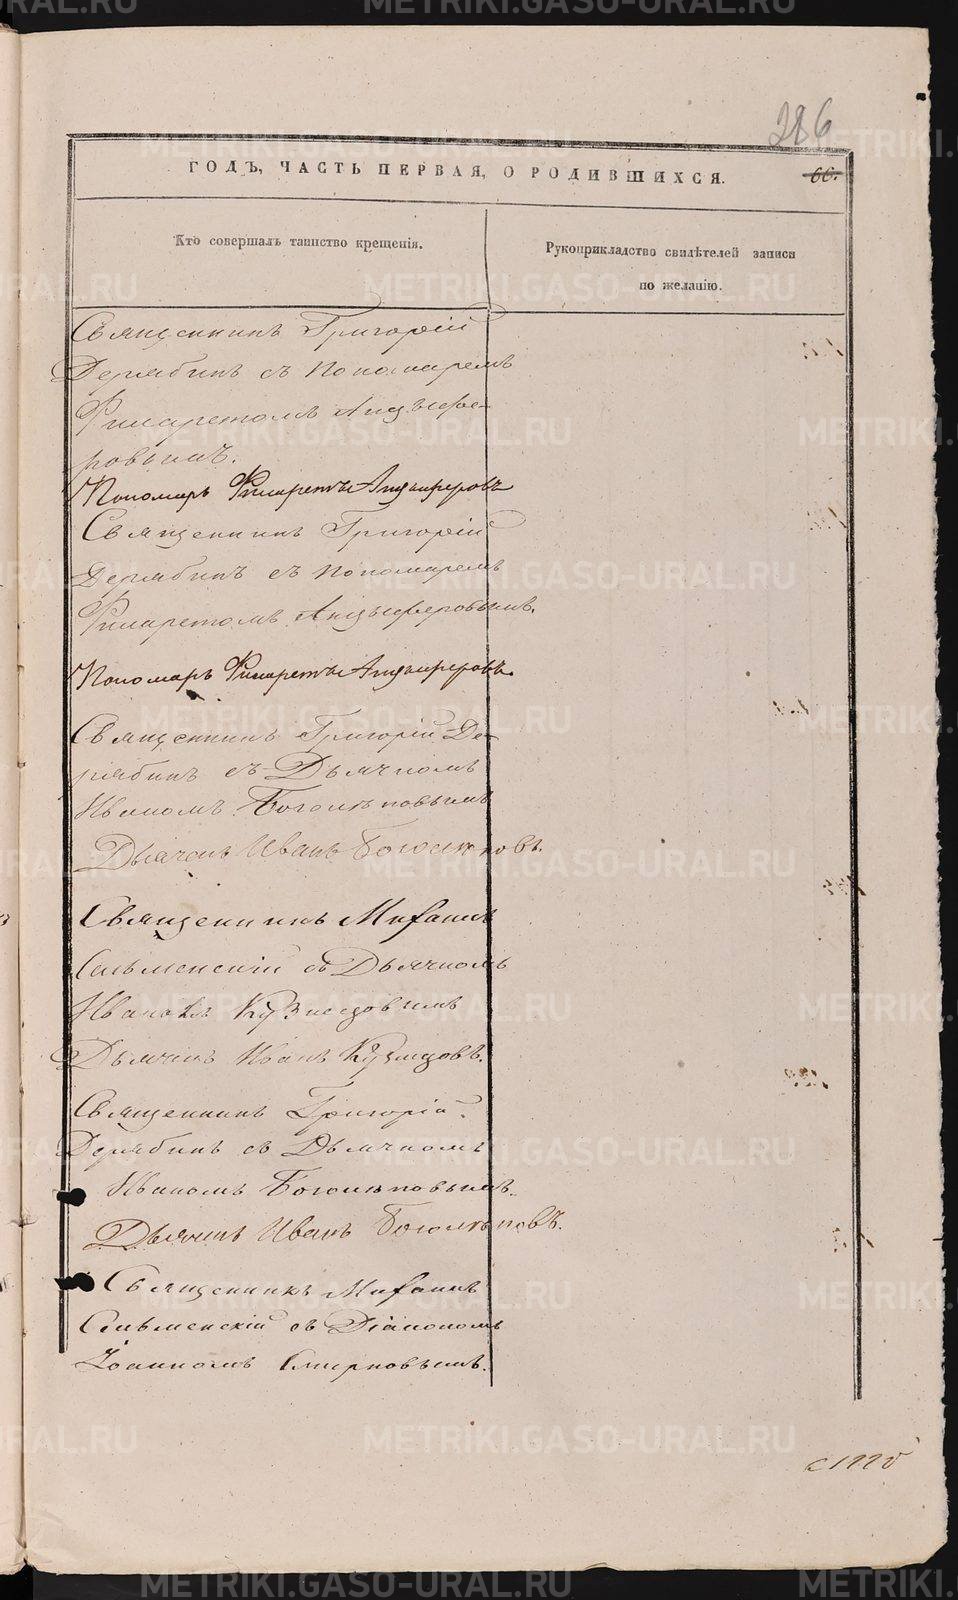 286
ГОДЪ, ЧАСТЬ ПЕРВАЯ, О РОДИВШИХСЯ.
66.
Кто совершалъ таинство крещенія.
Рукоприкладство свидѣтелей записи
по желанію.
Священникъ Григорій
Дерябинъ съ Пономаремъ
Филаретомъ Анцыфе-
ровымъ.
Пономарь Филаретъ Анцыферовъ
Священникъ Григорій
Дерябинъ съ Пономаремъ
Филаретомъ Анцыферовымъ.
Пономарь Филаретъ Анцыферовъ.
Священникъ Григорій Де-
рябинъ съ Дьячкомъ
Иваномъ Боголѣповымъ
Дьячекъ Иванъ Боголѣповъ.
Священникъ Михаилъ
Сельменскій съ Дьячкомъ
Иваномъ Кузнецовымъ
Дьячекъ Иванъ Кузнецовъ.
Священникъ Григорій
Дерябинъ съ Дьячкомъ
Иваномъ Боголѣповымъ.
Дьячекъ Иванъ Боголѣповъ.
Священникъ Михаилъ
Сельменскій съ Діакономъ
Іоанномъ Смирновымъ.
METRIKI.GASO-URAL.RU